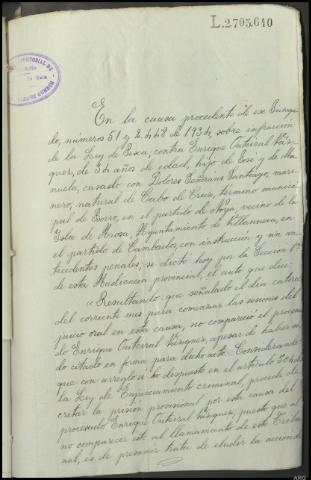 L.2705.640
En la causa procedente de ese Juzga-
do, números 51 y 2.448 de 1934, sobre infracción
de la Ley de Pesca, contra Enrique Outeiral Váz-
quez, de 34 años de edad, hijo de Jose y de Ma-
nuela, casado con Dolores Santiago, mari-
nero, natural de Cabo de Cruz, término munici-
pal de Boiro, en el partido de Noya, vecino de la
Isla de Arosa, Ayuntamiento de Villanueva, en
el partido de Cambados, con instrucción y sin an-
tecedentes penales, se dictó hoy por la Sección 1ª
de esta Audiencia provincial, el auto que dice:
"Resultando: que señalado el día catorce
del corriente mes para comenzar las sesiones del
juicio oral en esta causa, no compareció el procesa-
do Enrique Outeiral Vázquez, apesar de haber si-
do citado en forma para dicho acto = Considerando
que con arreglo a lo dispuesto en el artículo
la Ley de Enjuiciamiento criminal, procede de-
cretar la prisión provisional por esta causa del
procesado Enrique Outeiral Vázquez, puesto que al
no comparecer este al llamamiento de este Tribu-
nal, es de presumir trate de eludir la acción de
ARG